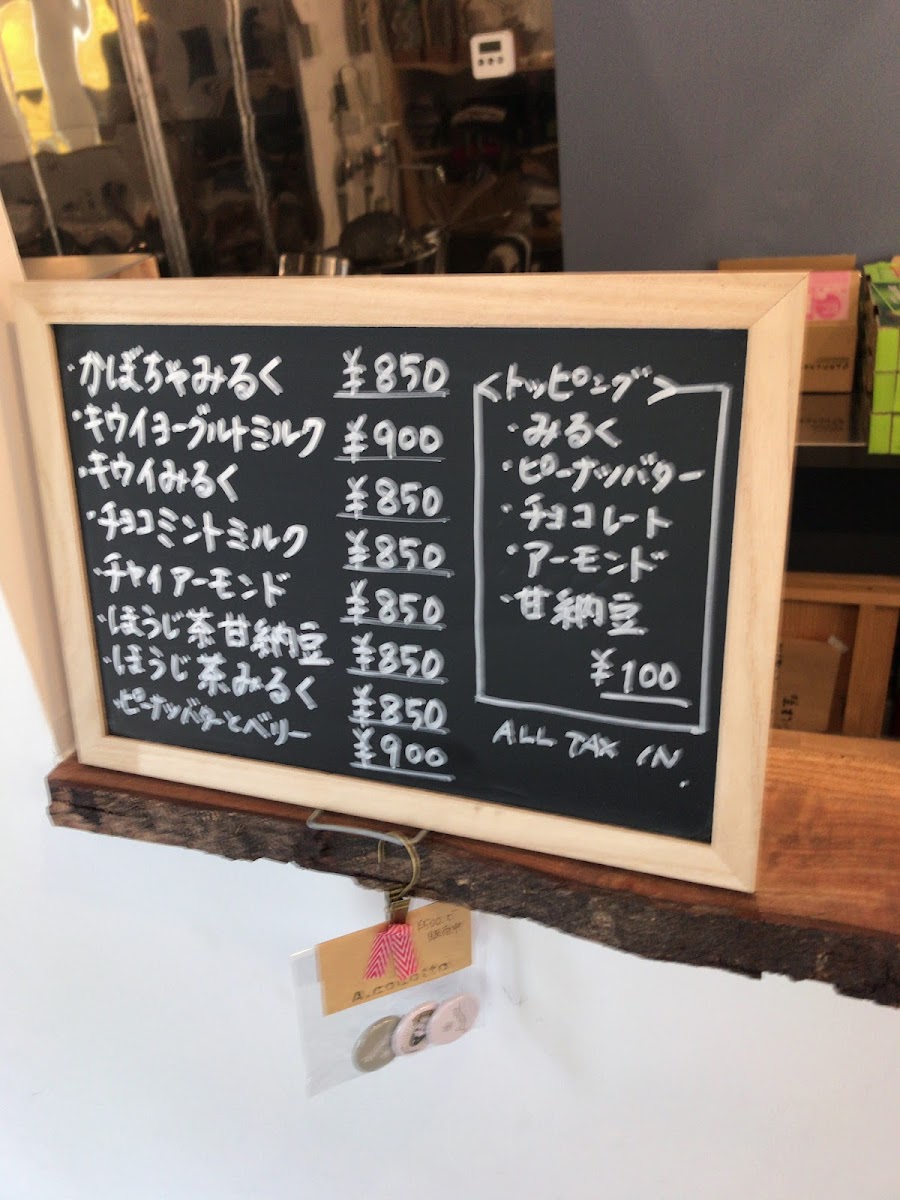 ・かぼちゃみるく ¥850
・キウイヨーグルトミルク ¥900
・キウイみるく ¥850
・チョコミントミルク ¥850
・チャイアーモンド ¥850
・ほうじ茶甘納豆 ¥850
・ほうじ茶みるく ¥850
・ピーナッツバターとベリー ¥900
<トッピング>
・みるく
・ピーナッツバター
・チョコレート
・アーモンド
・甘納豆
¥100
ALL TAX IN